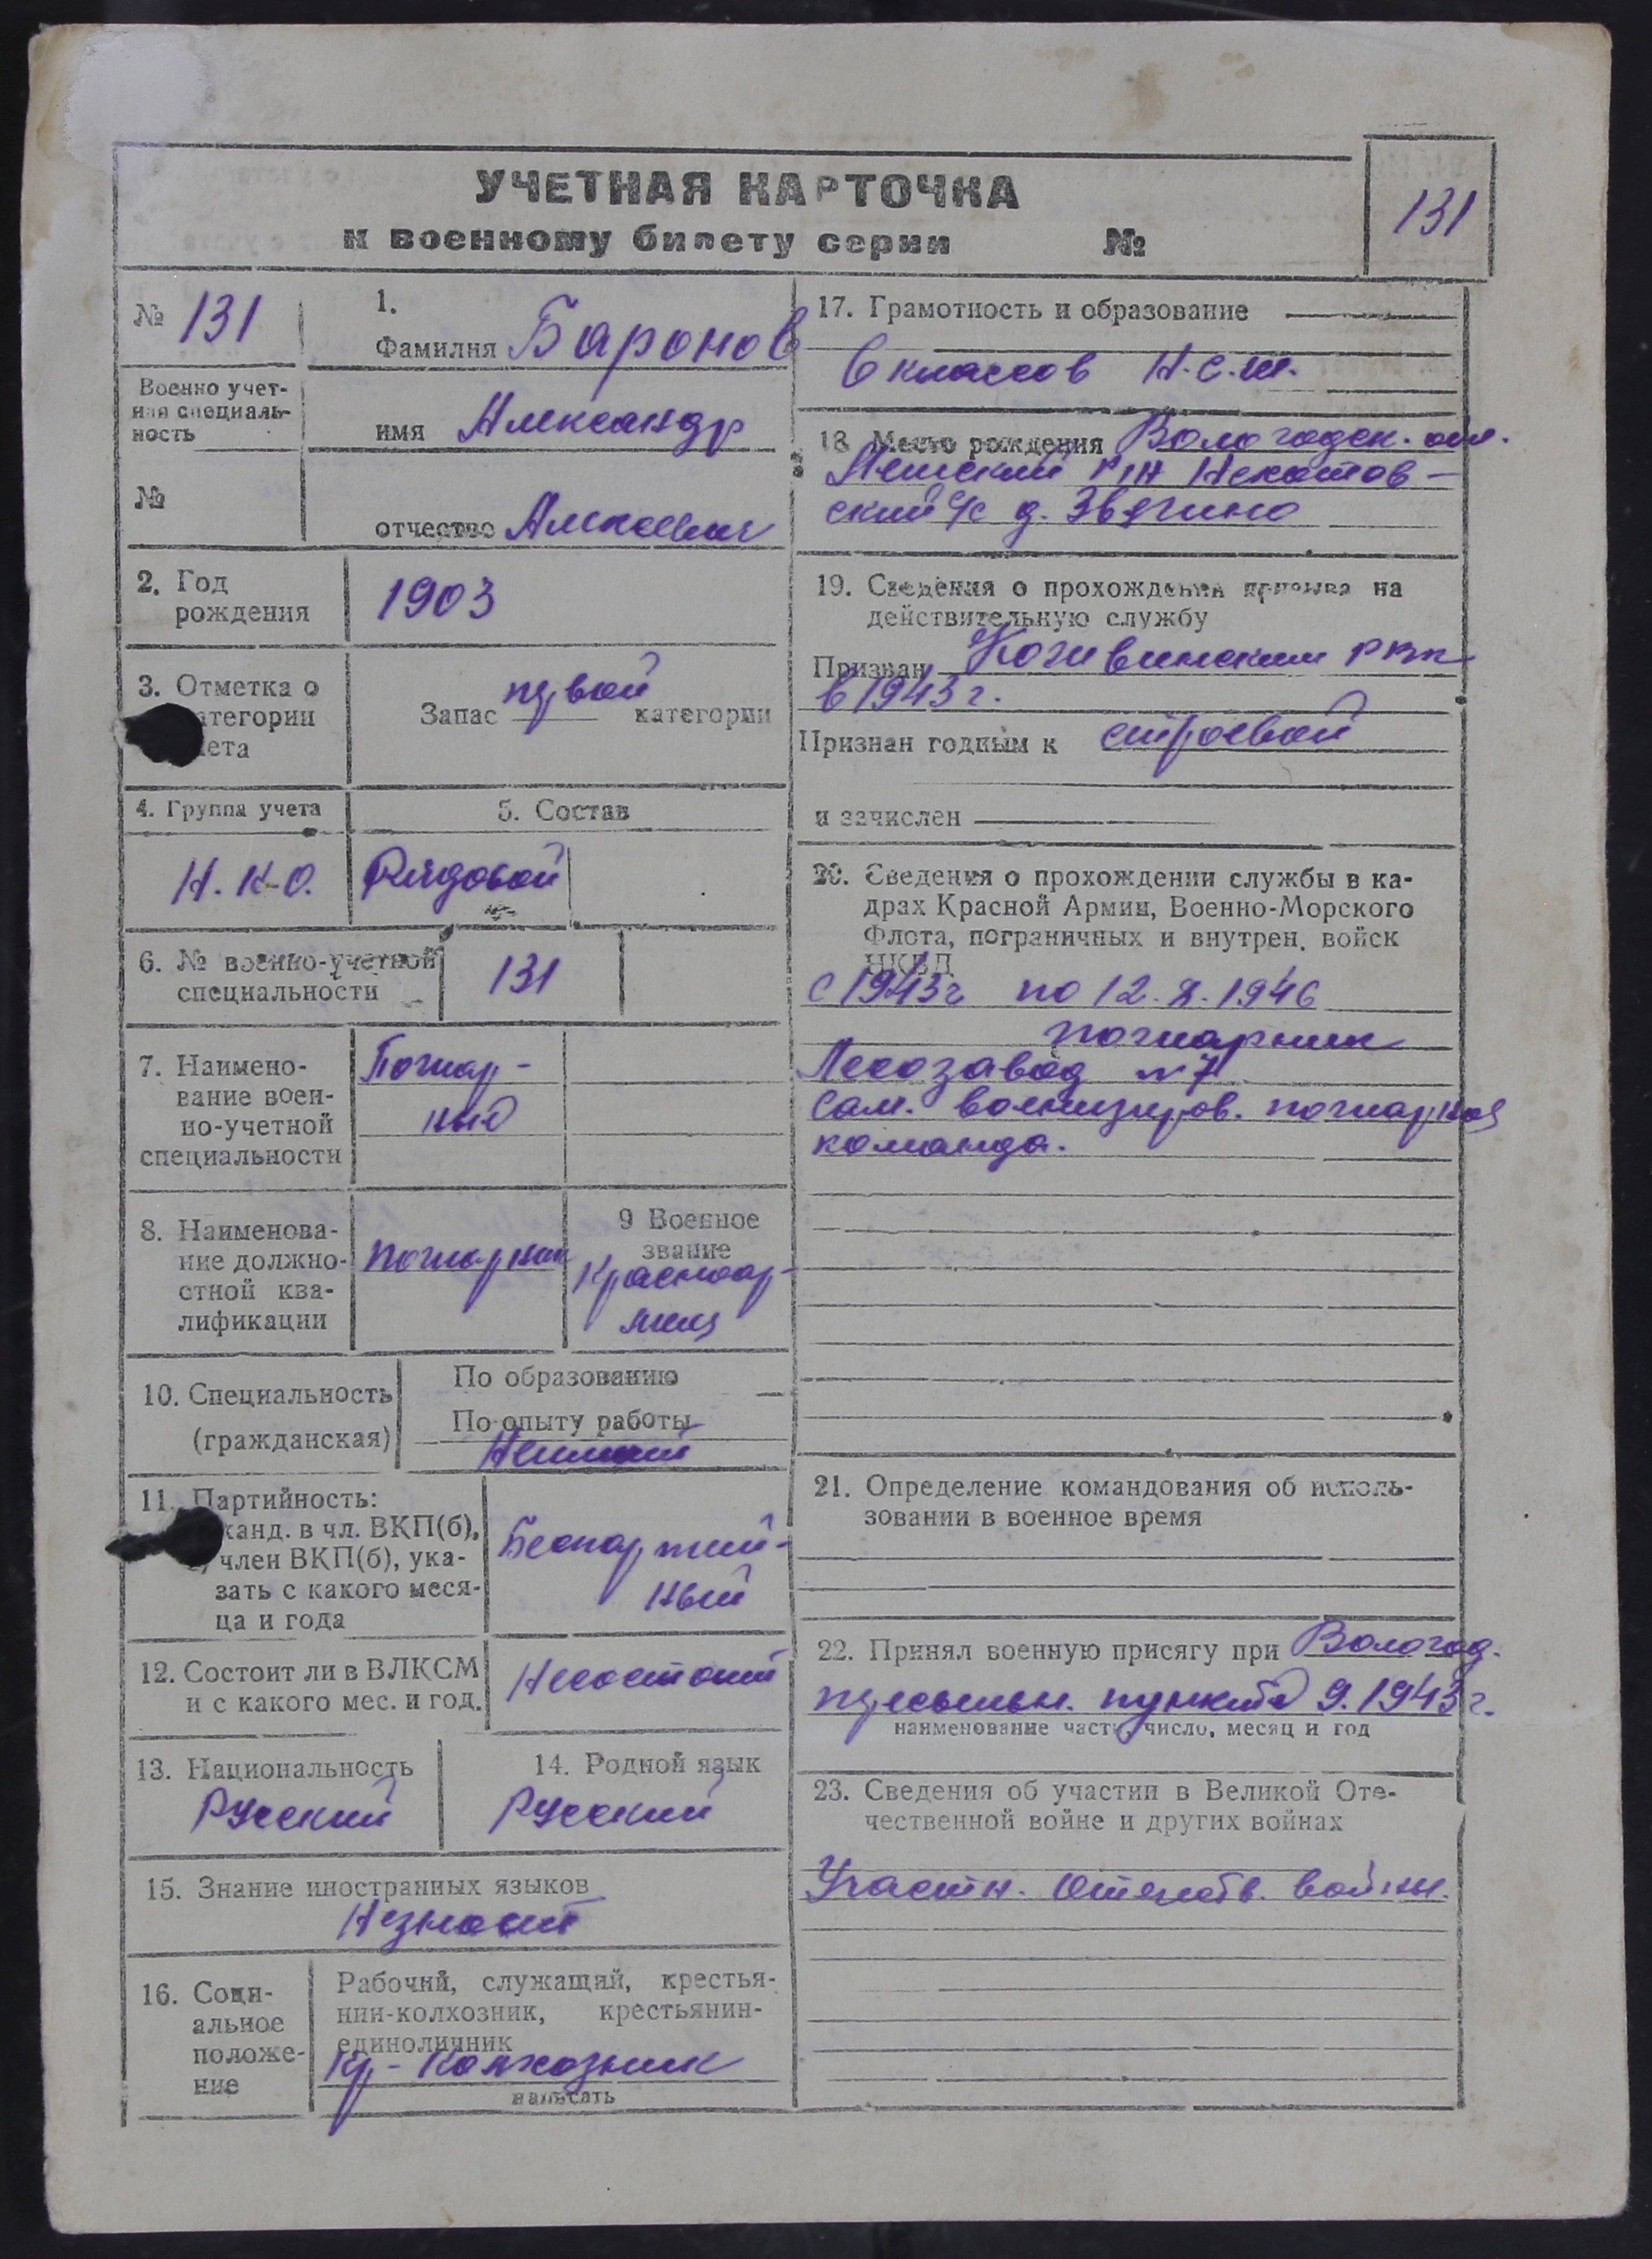 УЧЕТНАЯ КАРТОЧКА
к военному билету серии №
131
№ 131
Военно учет-
ная специаль-
ность
№
1.
Фамилия Баронов
имя Александр
отчество Алексеевич
2. Год
рождения
1903
3. Отметка о
категории
учета
Запас первой категории
4. Группа учета
Н.К.О.
5. Состав
Рядовой
6. № военно-учетной
специальности
131
7. Наимено-
вание воен-
но-учетной
специальности
Пожар-
ный
8. Наименова-
ние должно-
стной ква-
лификации
пожарник
9 Военное
звание
Красноар-
меец
10. Специальность
(гражданская)
По образованию
По опыту работы
Неимеет
11. Партийность:
канд. в чл. ВКП(б),
член ВКП(б), ука-
зать с какого меся-
ца и года
Беспартий-
ный
12. Состоит ли в ВЛКСМ
и с какого мес. и год.
Несостоит
13. Национальность
Русский
14. Родной язык
Русский
15. Знание иностранных языков
Незнает
16. Соци-
альное
положе-
ние
Рабочий, служащий, крестья-
нин-колхозник, крестьянин-
единоличник
кр-колхозник
написать
17. Грамотность и образование
6 классов Н.С.Ш.
18 Место рождения Вологодск. обл.
р-н
ский с/с д. Звягино
19. Сведения о прохождении призыва на
действительную службу
Призван РВК
в 1943 г.
Признан годным к строевой
и зачислен
20. Сведения о прохождении службы в ка-
драх Красной Армии, Военно-Морского
Флота, пограничных и внутрен. войск
НКВД
с 1943г по 12.X.1946
пожарник
Лесозавод №7
Сам. военизиров. пожарная
команда.
21. Определение командования об исполь-
зовании в военное время
22. Принял военную присягу при Вологод.
пересыльн. пункте 9.1943г.
наименование части, число, месяц и год
23. Сведения об участии в Великой Оте-
чественной войне и других войнах
Участн. Отечеств. войны.